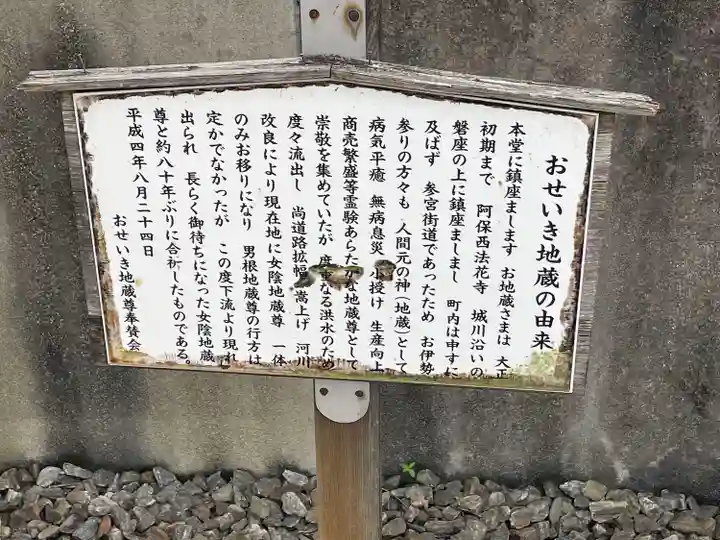 おせいき地蔵の由来
本堂に鎮座まします お地蔵さまは 大正
初期まで 阿保西法花寺 城川沿いの
磐座の上に鎮座ましまし 町内は申すに
及ばず 参宮街道であったため お伊勢
参りの方々も 人間元の神(地蔵)として
病気平癒 無病息災 小授け 生産向上
商売繁盛等霊験あらたかな地蔵尊として
崇敬を集めていたが 度重なる洪水のため
度々流出し 尚道路拡幅 嵩上げ 河川
改良により現在地に女陰地蔵尊 一体
のみお移りになり 男根地蔵尊の行方は
定かでなかったが この度下流より現れ
出られ 長らく御待ちになった女陰地蔵
尊と約八十年ぶりに合祈したものである。
平成四年八月二十四日
おせいき地蔵尊奉賛会